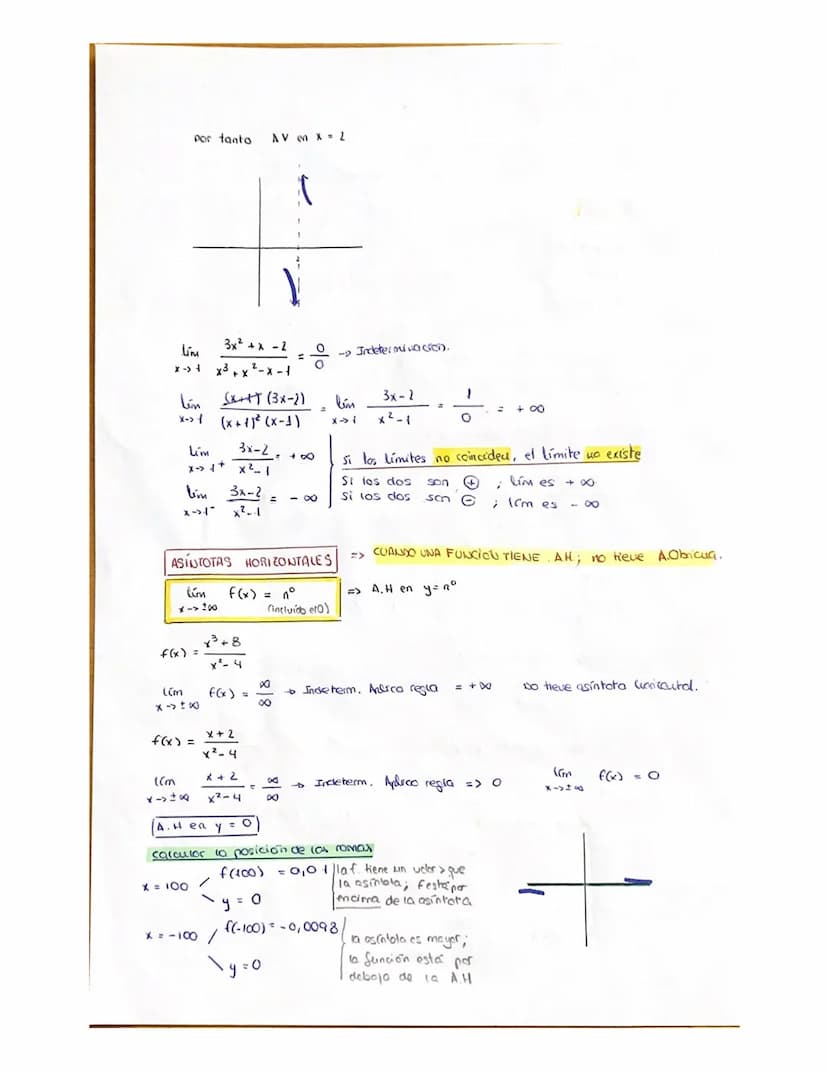 por tanto AV en x = 2
2
lím x->1 3x² + x - 2 / x³ + x² - x - 1 = 0/0 -> Indeterminación.
lím x->1 (x+1)(3x-2) / (x+1)² (x-1) = lím x->1 3x-2 / x²-1 = 1/0 = +∞
lím x->1+ 3x-2 / x²-1 = +∞
lím x->1- 3x-2 / x²-1 = -∞
Si los límites no coinciden, el límite no existe
Si los dos son ⊕ ; lím es +∞
Si los dos son ⊖ ; lím es -∞
ASÍNTOTAS HORIZONTALES => CUANDO UNA FUNCIÓN TIENE A.H; no tiene A.Oblicua.
lím x->±∞ f(x) = nº (incluído el 0) => A.H en y = nº
f(x) = x³+8 / x²-4
lím x->±∞ f(x) = ∞/∞ -> Indeterm. Aplico regla = +∞ no tiene asíntota horizontal.
f(x) = x+2 / x²-4
lím x->±∞ x+2 / x²-4 = ∞/∞ -> Indeterm. Aplico regla => 0 lím x->±∞ f(x) = 0
A.H en y = 0
calcular la posición de las ramas
x = 100 / f(100) = 0,01
\ y = 0
la f. tiene un valor > que
la asíntota; f está por
encima de la asíntota
x = -100 / f(-100) = -0,0098
\ y = 0
la asíntota es mayor;
la función está por
debajo de la A.H